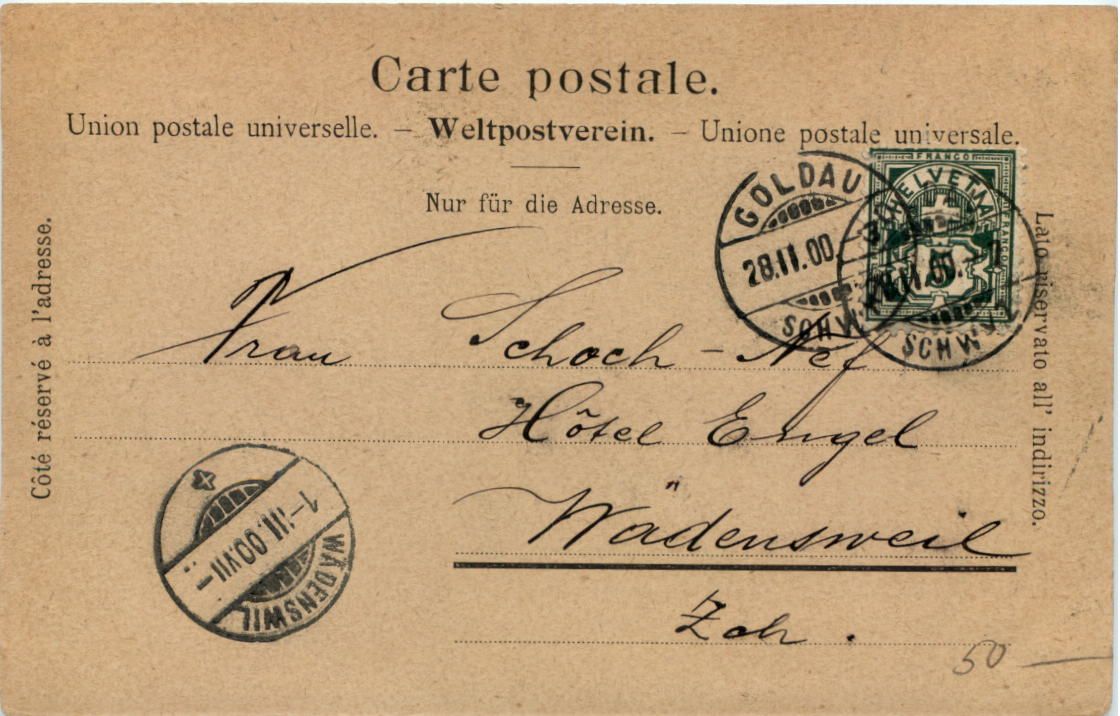 Carte postale.
Union postale universelle. – Weltpostverein. – Unione postale universale.
Nur für die Adresse.
Côté réservé à l'adresse.
Lato riservato all' indirizzo.
FRANCO
HELVETIA
FRANCO
5
GOLDAU
28.II.00.
SCHWYZ
28.II.00.–7
SCHWYZ
Frau Schoch-Nef
Hôtel Engel
Wädensweil
Zch.
1–III.00.VII–
WÄDENSWIL
50 –